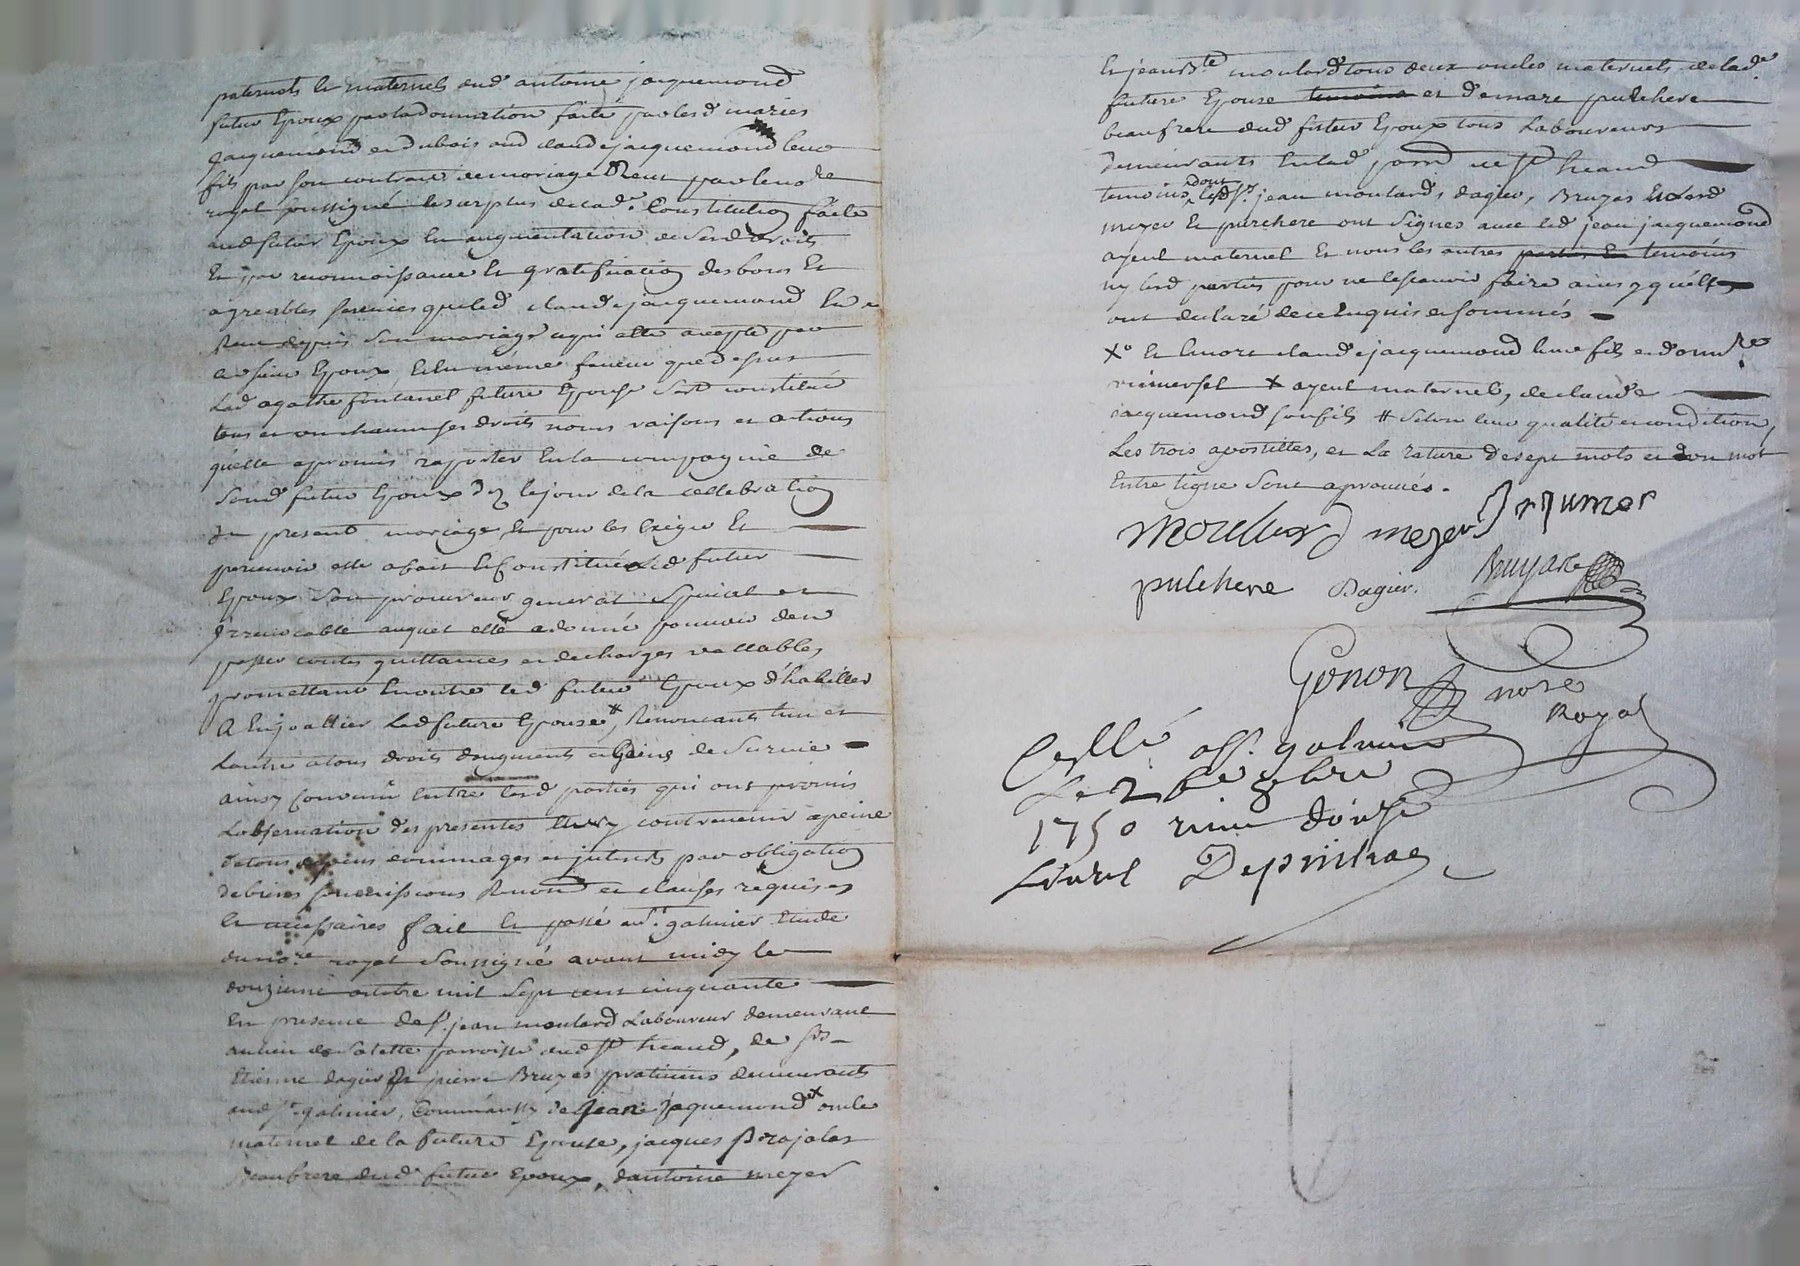 paternels et maternels aud antoine jacquemond
futur Epoux par la donnation faite par lesd mariés
jacquemond et dubois aud claude jacquemond leur
fils par son contract de mariage Receu par le no.re
royal soussigné le surplus de lad.e Constitution faite
aud futur Epoux en augmentation de sesd droits
Et par reconnoissance Et gratification des bons Et
agreables services que led claude jacquemond En a
Receu depuis son mariage accepté par
led futur Epoux Et en même faveur que dessus
Lad agathe fontanel future Epouse s'est constitué
tous et un chaqun ses droits noms raisons et actions
qu'elle a promis rapporter En la compagnie de
Sond futur Epoux dez le jour de la cellebration
du present mariage, Et pour les Exiger Et
percevoir elle a fait Et Constitué led futur
Epoux son procureur general special et
Irrevocable auquel elle a donné pouvoir d'en
passer toutes quittances et decharges vallables
promettant En outre led futur Epoux d'habiller
& Enjoallier Lad future Epouse #, Renonçants l'un et
L'autre a tous droits d'augments et Gains de Survie
ainsy Convenu Entre lesd parties qui ont promis
L'observation des presentes contrevenir a peine
de tous depens dommages et interets par obligation
de biens soumissions Renond et clauses requises
Et necessaires fait Et passé a S.t galmier Etude
du no.re royal Soussigné avant midy le
douzieme octobre mil sept cent cinquante
En presence de S.r jean moulard Laboureur demeurant
au lieu de la paroisse dud S.t heand, de S.rs
Etienne dagier Et pierre Bruyas praticiens demeurants
aud S.t galmier, de jean jaquemond x oncle
maternel de la future Epouse, jacques
Beaufrere dud futur Epoux, d'antoine meyer
Et jean B.te moulard tous deux oncles maternels de lad.e
future Epouse temoins et d'emare pulchere
beaufrere dud futur Epoux tous Laboureurs
demeurants En lad parr de S.t heand
temoins dont lesd S.rs jean moulard, dagier, Bruyas
meyer Et pulchere ont signés avec led jean jacquemond
ayeul maternel Et non les autres parties Et temoins
ny lesd parties pour ne le sçavoir faire ainsy qu'elles
ont declaré de ce Enquis et sommés
x° Et Encore claude jacquemond leur fils et donn.re
universel x ayeul maternel, de claude
jacquemond son fils # Selon leur qualité et condition,
Les trois apostilles, et La rature de sept mots et d'un mot
Entre ligne Sont aprouvés.
moulard meyer
pulchere Dagier. Bruyas
Gonon no.re
Royal
Cellé à S.t galmier
Le 8bre
1750 reçu douze
Livres